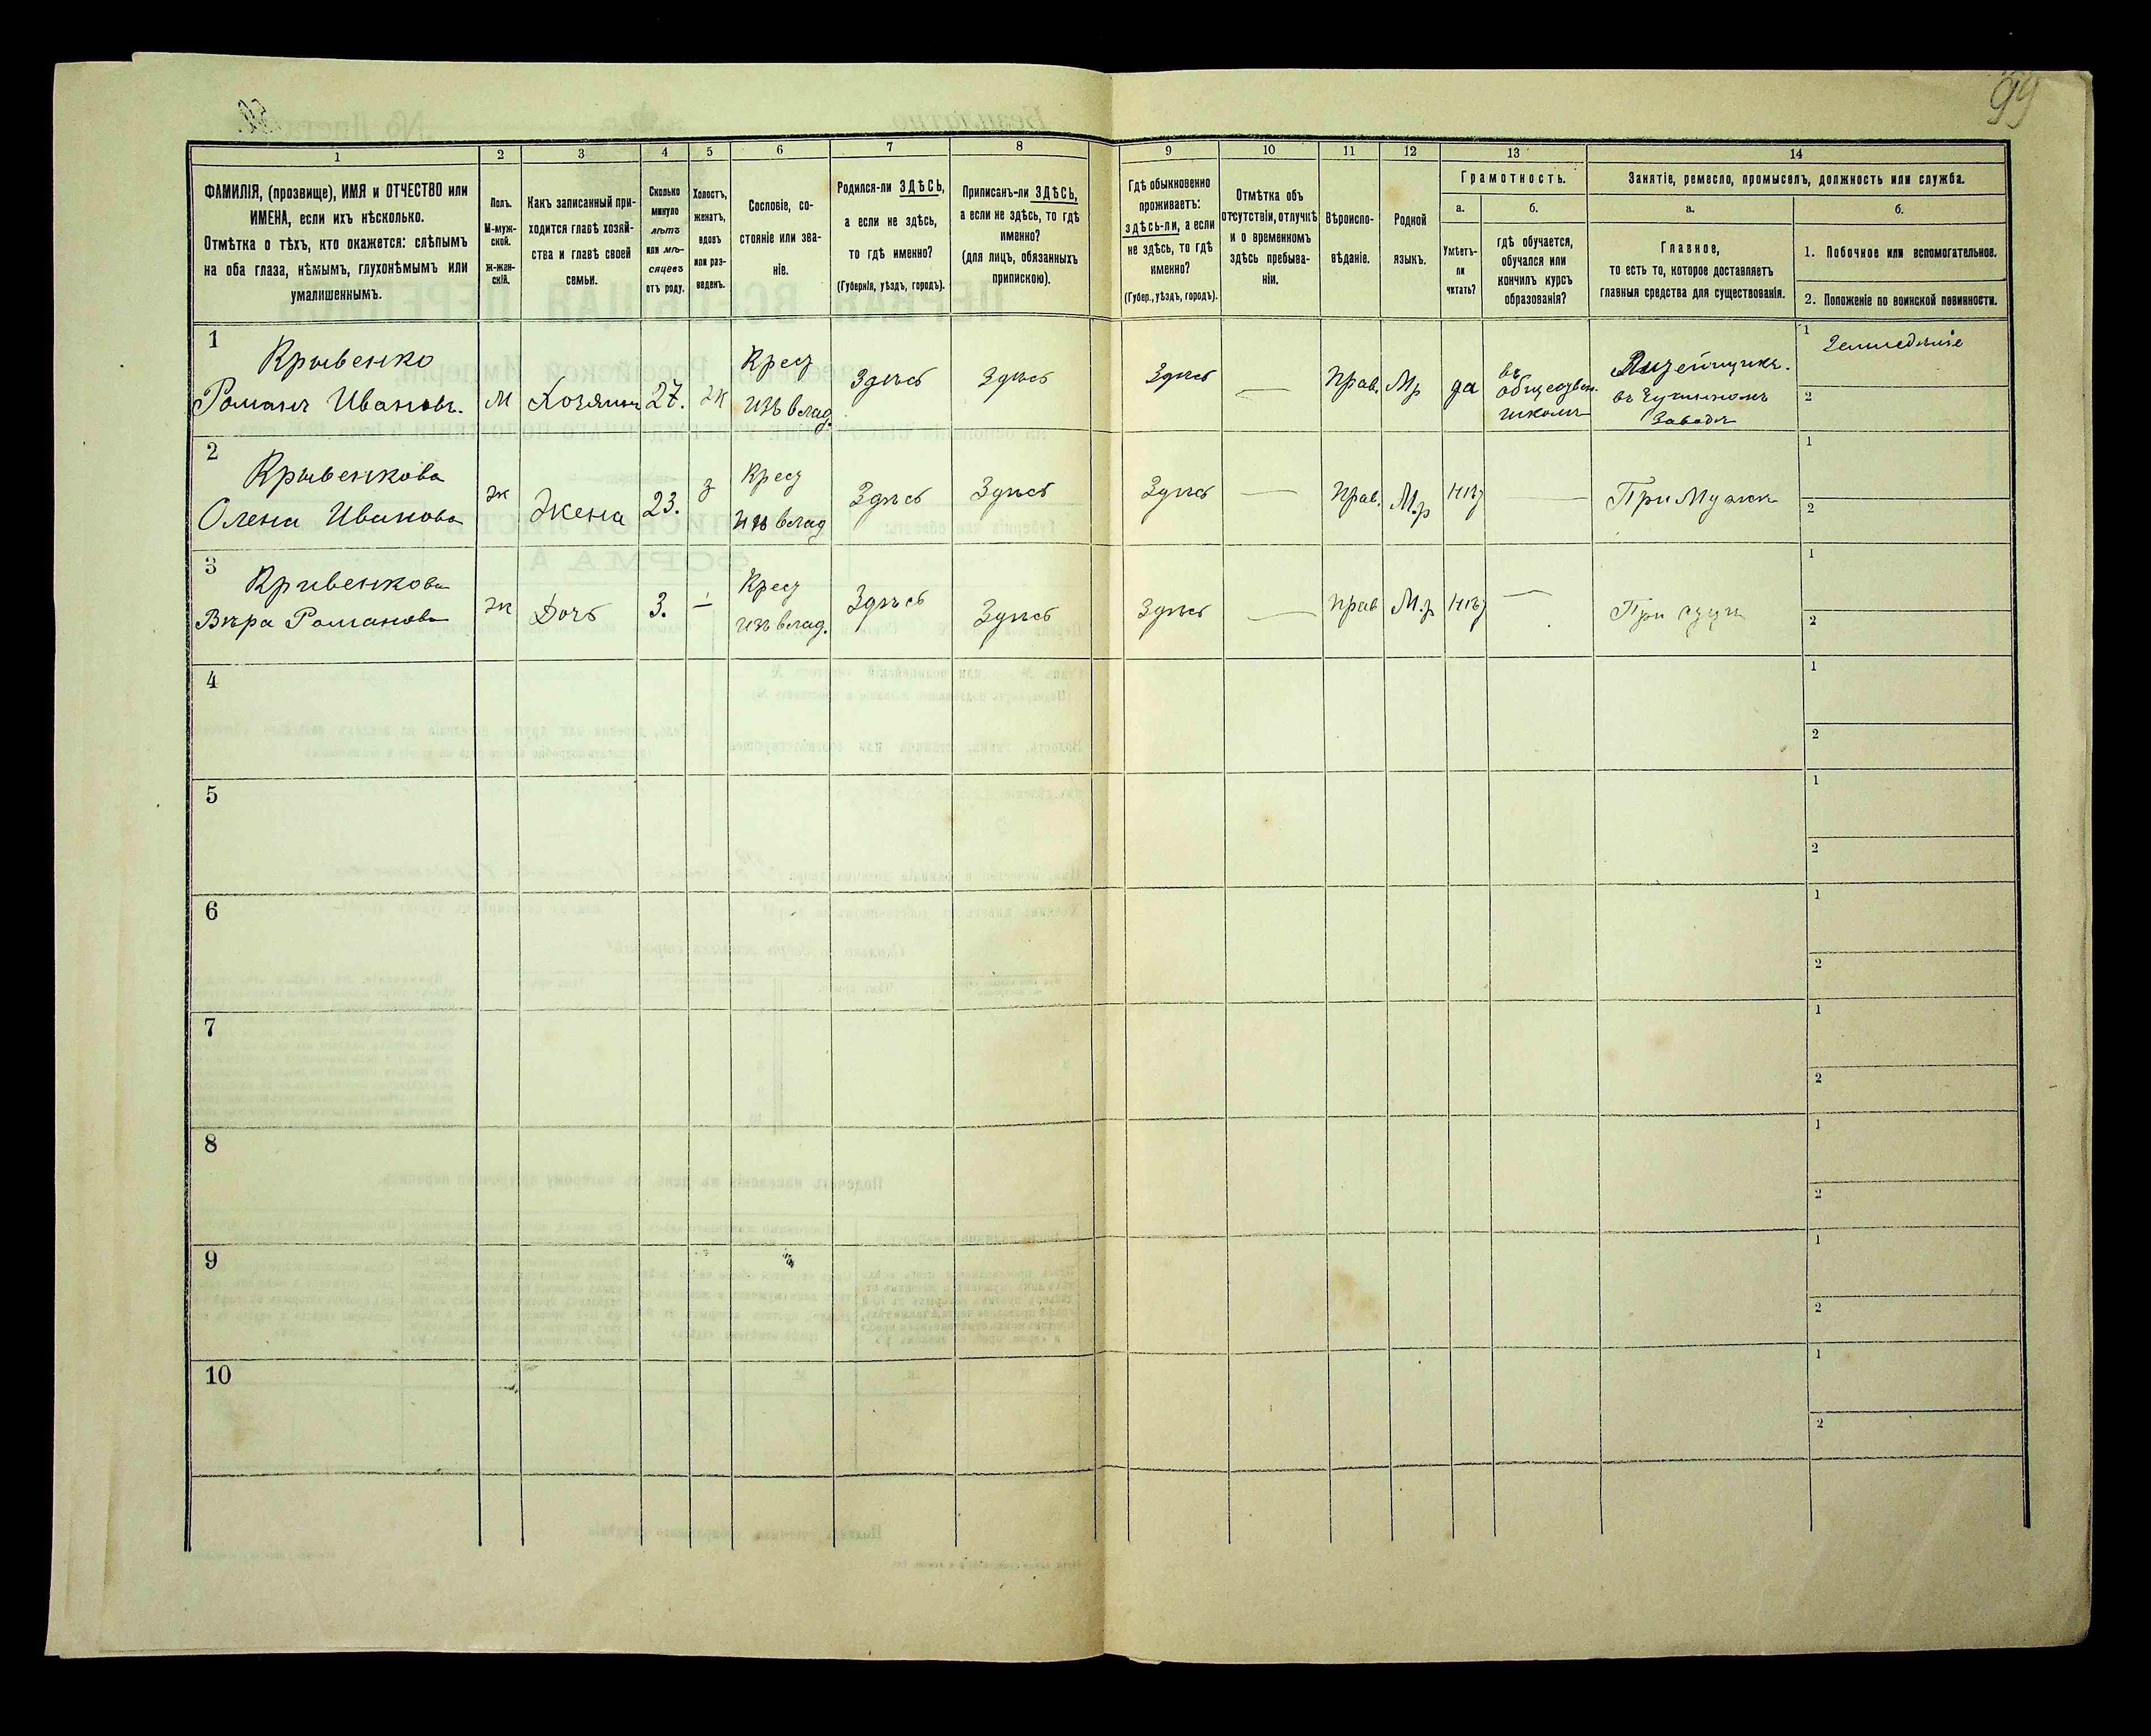 99
1 2 3 4 5 6 7 8 9 10 11 12 13 14
ФАМИЛІЯ, (прозвище), ИМЯ и ОТЧЕСТВО или
ИМЕНА, если ихъ нѣсколько.
Отмѣтка о тѣхъ, кто окажется: слѣпымъ
на оба глаза, нѣмымъ, глухонѣмымъ или
умалишеннымъ.
Полъ.
М-муж-
ской.
ж-жен-
скій.
Какъ записанный при-
ходится главѣ хозяй-
ства и главѣ своей
семьи.
Сколько
минуло
лѣтъ
или мѣ-
сяцевъ
отъ роду.
Холостъ,
женатъ,
вдовъ
или раз-
веденъ.
Сословіе, со-
стояніе или зва-
ніе.
Родился-ли ЗДѢСЬ,
а если не здѣсь,
то гдѣ именно?
(Губернія, уѣздъ, городъ).
Приписанъ-ли ЗДѢСЬ,
а если не здѣсь, то гдѣ
именно?
(для лицъ, обязанныхъ
припискою).
Гдѣ обыкновенно
проживаетъ:
здѣсь-ли, а если
не здѣсь, то гдѣ
именно?
(Губер., уѣздъ, городъ).
Отмѣтка объ
отсутствіи, отлучкѣ
и о временномъ
здѣсь пребыва-
ніи.
Вѣроиспо-
вѣданіе.
Родной
языкъ.
Грамотность.
а.
Умѣетъ-
ли
читать?
б.
гдѣ обучается,
обучался или
кончилъ курсъ
образованія?
Занятіе, ремесло, промыселъ, должность или служба.
а.
Главное,
то есть то, которое доставляетъ
главныя средства для существованія.
б.
1. Побочное или вспомогательное.
2. Положеніе по воинской повинности.
1
Крывенко
Романъ Ивановъ.
М
Хозяинъ
27.
ж
Крест
изъ влад.
Здѣсь
Здѣсь
Здѣсь
—
Прав.
М.р
да
въ
обществен.
школѣ
Литейщикъ.
въ Чугунномъ
Заводѣ
1
Земледѣліе
2
2
Крывенкова
Олена Иванова
ж
Жена
23.
з
Крест
изъ влад
Здѣсь
Здѣсь
Здѣсь
—
Прав.
М.р
нѣт
—
При Мужѣ
1
2
3
Кривенкова
Вѣра Романова
ж
Дочь
3.
—
Крест
изъ влад.
Здѣсь
Здѣсь
Здѣсь
—
Прав
М.р
нѣт
—
При отцѣ
1
2
4
1
2
5
1
2
6
1
2
7
1
2
8
1
2
9
1
2
10
1
2